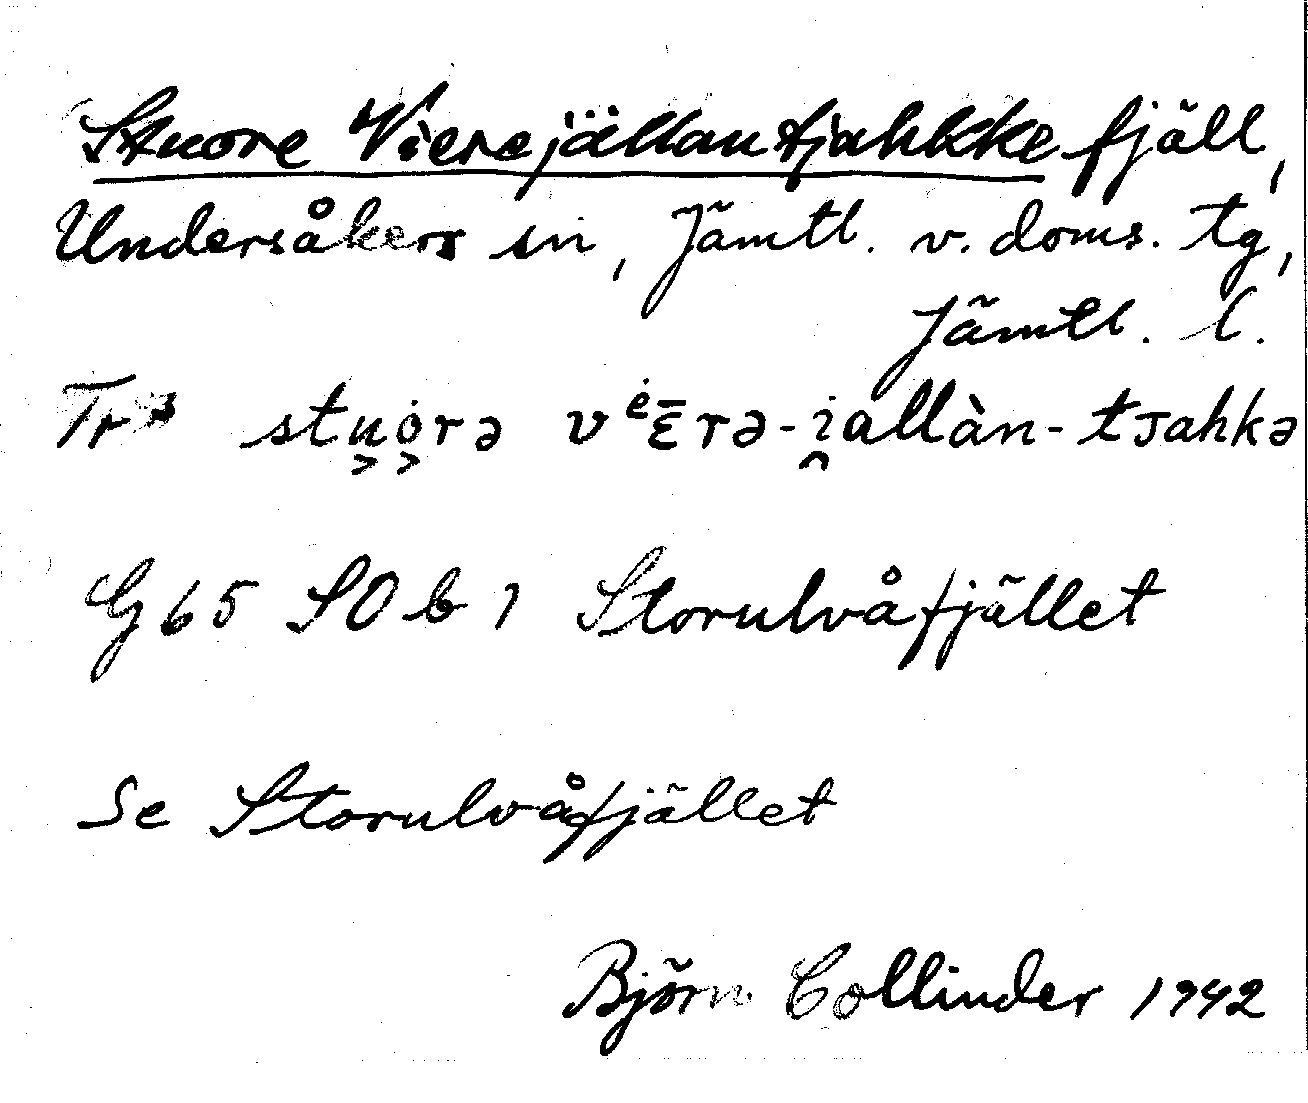 Stuore Vierejällantjahkke fjäll,
Undersåkers sn, Jämtl. v. doms. tg,
Jämtl. l.
Tr³ stu̬o̬rə vėε̄rə-i̯allàn-tᴊahkə
G 65 SO b 1 Storulvåfjället
Se Storulvåfjället
Björn Collinder 1942